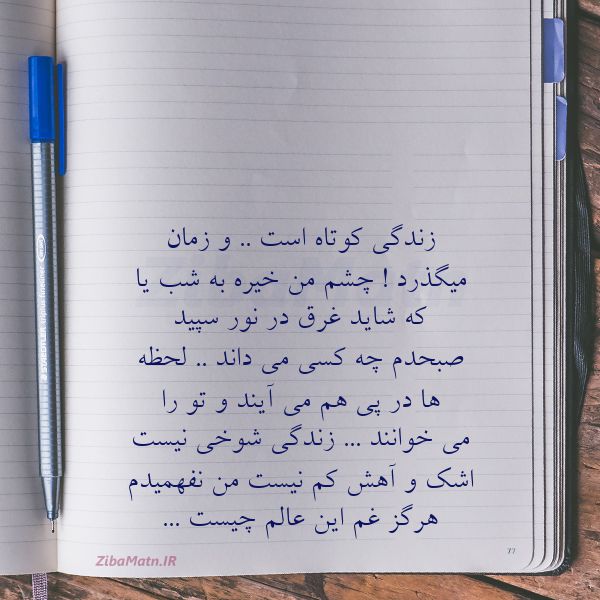 زندگی کوتاه است .. و زمان
میگذرد ! چشم من خیره به شب یا
که شاید غرق در نور سپید
صبحدم چه کسی می داند .. لحظه
ها در پی هم می آیند و تو را
می خوانند ... زندگی شوخی نیست
اشک و آهش کم نیست من نفهمیدم
هرگز غم این عالم چیست ...
ZibaMatn.IR